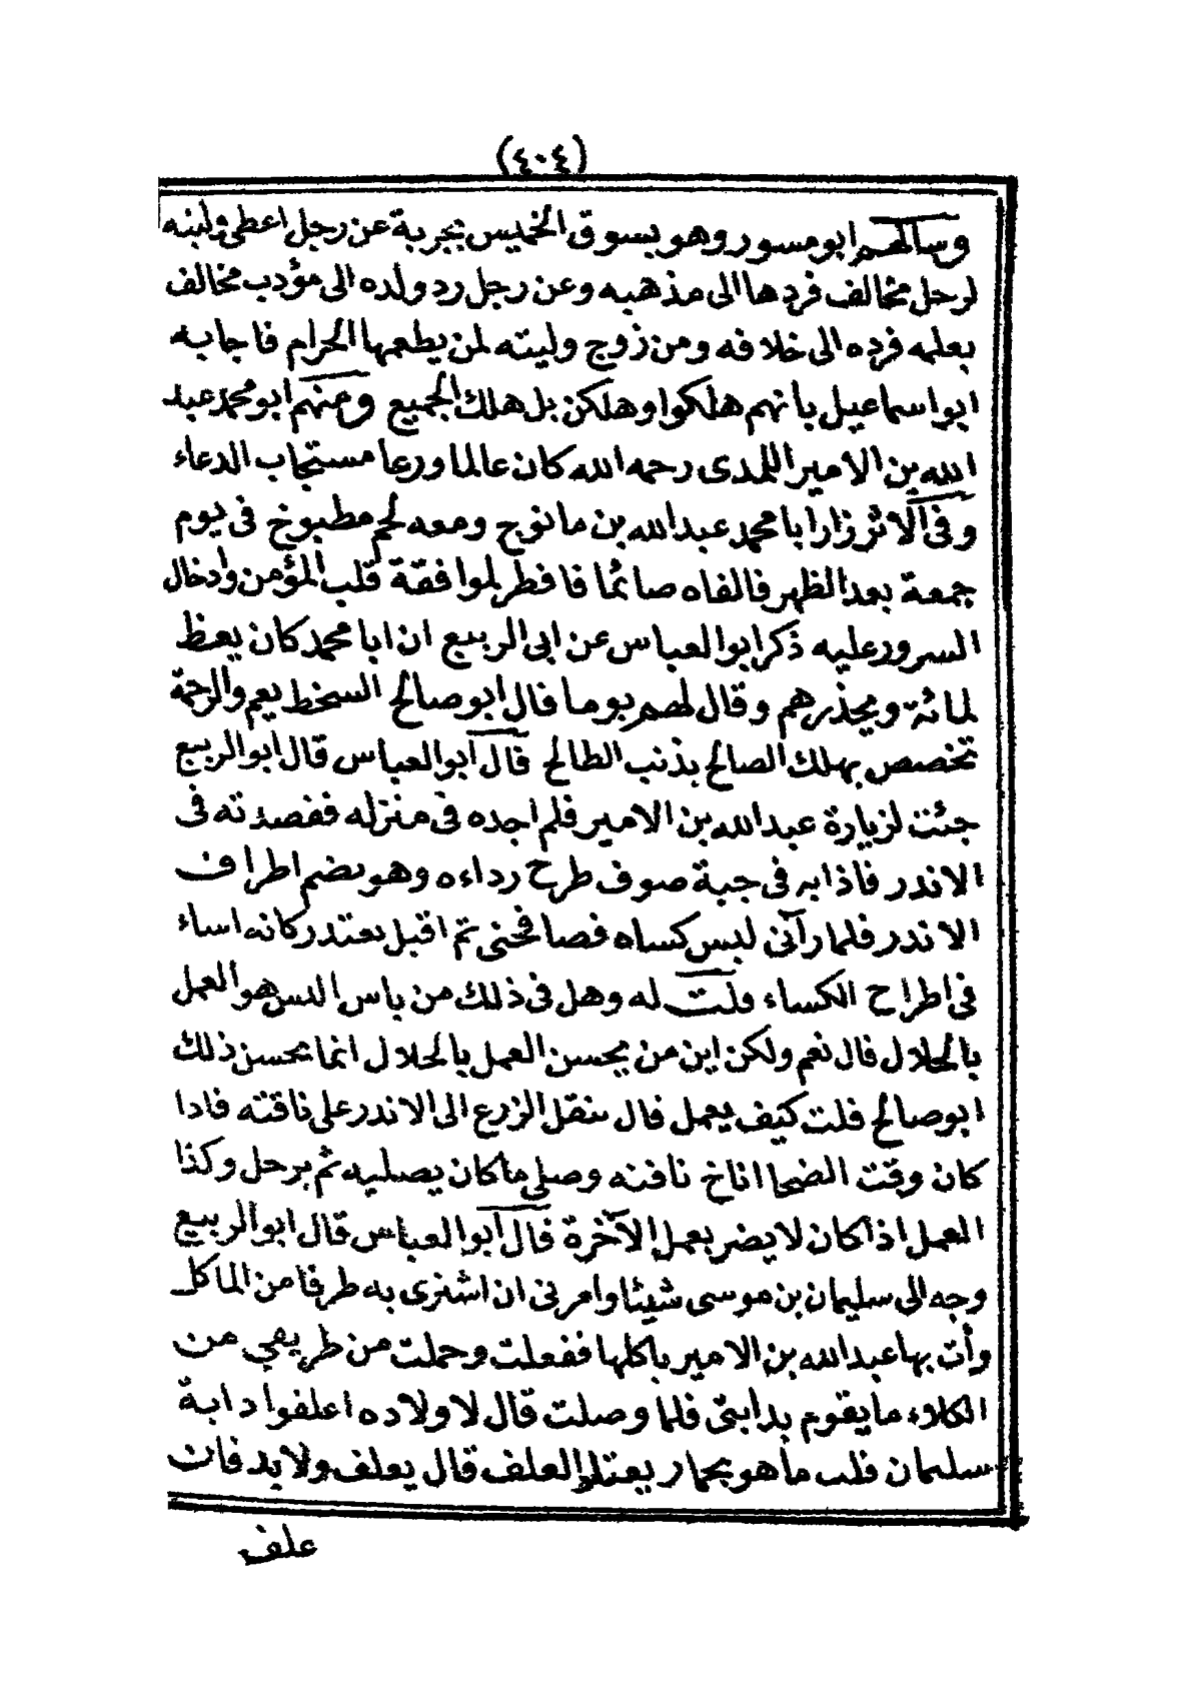 (٤٠٤)
وسالهم ابو مسور وهو بسوق الخميس بجربة عن رجل اعطى وليته
لرجل مخالف فردها الى مذهبه وعن رجل رد ولده الى مؤدب مخالف
يعلمه فرده الى خلافه ومن زوج وليته لمن يطعمها الحرام فاجابه
ابو اسماعيل بانهم هلكوا وهلكن بل هلك الجميع ومنهم ابو محمد عبد
الله بن الامير اللمدى رحمه الله كان عالما ورعا مستجاب الدعاء
وفى الاثر زار ابا محمد عبد الله بن مانوج ومعه لحم مطبوخ فى يوم
جمعة بعد الظهر فالفاه صائما فافطر لموافقة قلب المؤمن وادخال
السرور عليه ذكر ابو العباس عن ابى الربيع ان ابا محمد كان يعظ
لمائة ويحذرهم وقال لهم يوما قال ابو صالح السخط يعم والرحمة
تخصص يهلك الصالح بذنب الطالح قال ابو العباس قال ابو الربيع
جئت لزيارة عبد الله بن الامير فلم اجده فى منزله فقصدته فى
الاندر فاذا به فى جبة صوف طرح رداءه وهو يضم اطراف
الاندر فلما رآنى لبس كساه فصافحنى ثم اقبل يعتدر كانه اساء
فى اطراح الكساء قلت له وهل فى ذلك من باس اليس هو العمل
بالحلال قال نعم ولكن اين من يحسن العمل بالحلال انما يحسن ذلك
ابو صالح قلت كيف يعمل قال ينقل الزرع الى الاندر على ناقته فادا
كان وقت الضحا اناخ ناقته وصلى ما كان يصليه ثم يرحل وكذا
العمل اذا كان لا يضر بعمل الآخرة قال ابو العباس قال ابو الربيع
وجه الى سليمان بن موسى شيئا وامرنى ان اشترى به طرفا من الماكل
وأت بها عبد الله بن الامير ياكلها ففعلت وحملت من طريقي من
الكلاء ما يقوم بدابتى فلما وصلت قال لاولاده اعلفوا دابة
سليمان قلت ما هو بحمار يعتلر العلف قال يعلف ولا بد فات
علف